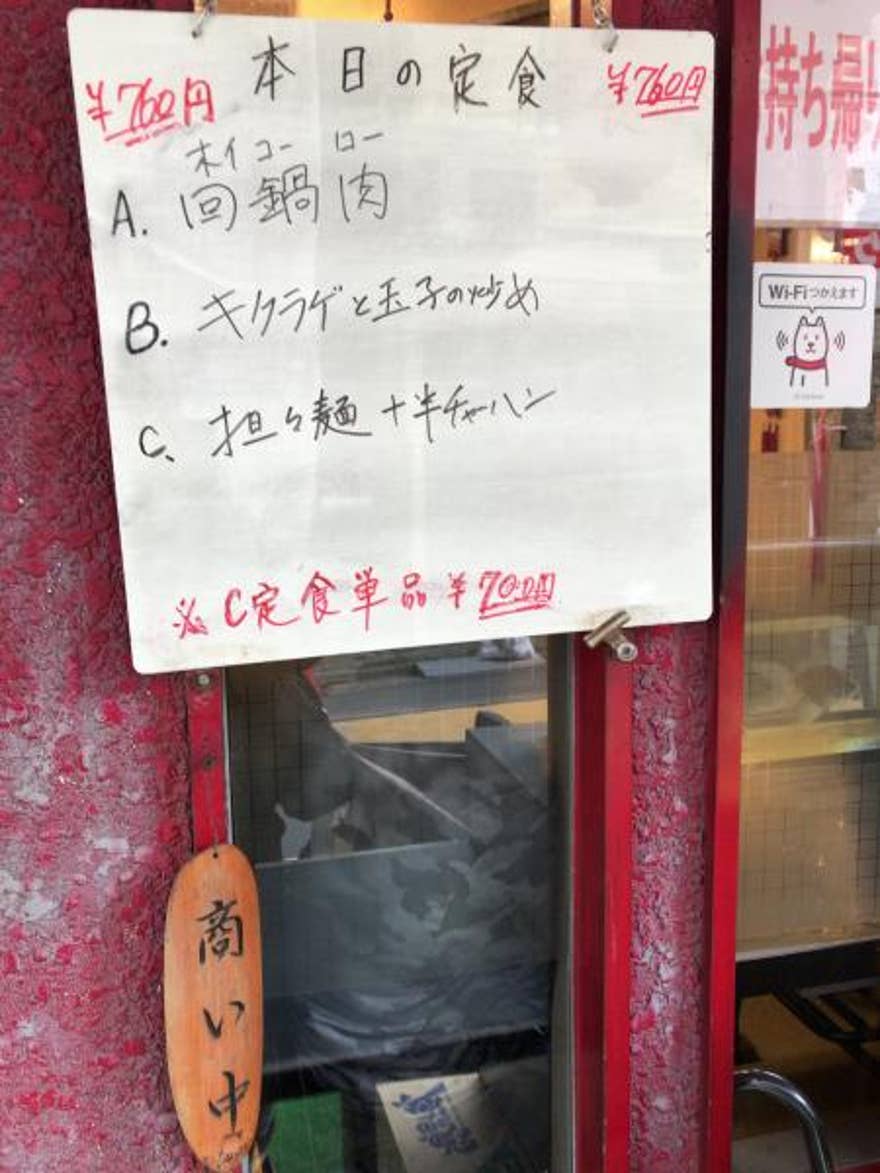 本日の定食
¥760円 ¥760円
ホイコーロー
A. 回鍋肉
B. キクラゲと玉子の炒め
C、担々麺+半チャーハン
※C定食単品¥700円
持ち帰り
Wi-Fiつかえます
商い中